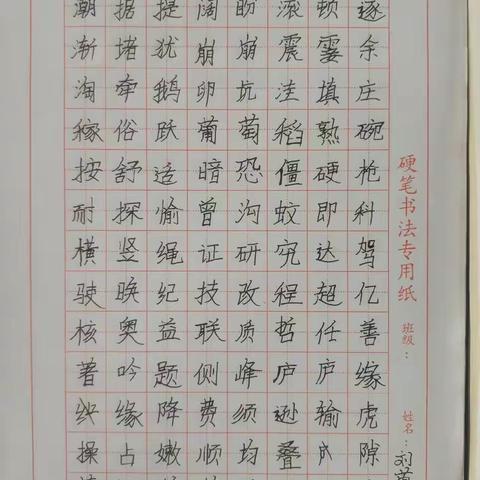 潮据提阔盼滚顿逐
渐堵犹崩崩震霎余
淘牵鹅卵坑洼填庄
稼俗跃葡萄稻熟碗
按舒适暗恐僵硬枪
耐探愉曾沟蚊即科
横竖绳证研究达驾
驶唤纪技改程超亿
核奥益联质哲任善
著吟题侧峰庐庐缘
缘降费须逊输虎
操占嫩顺均叠隙
硬笔书法专用纸
班级：
姓名：刘